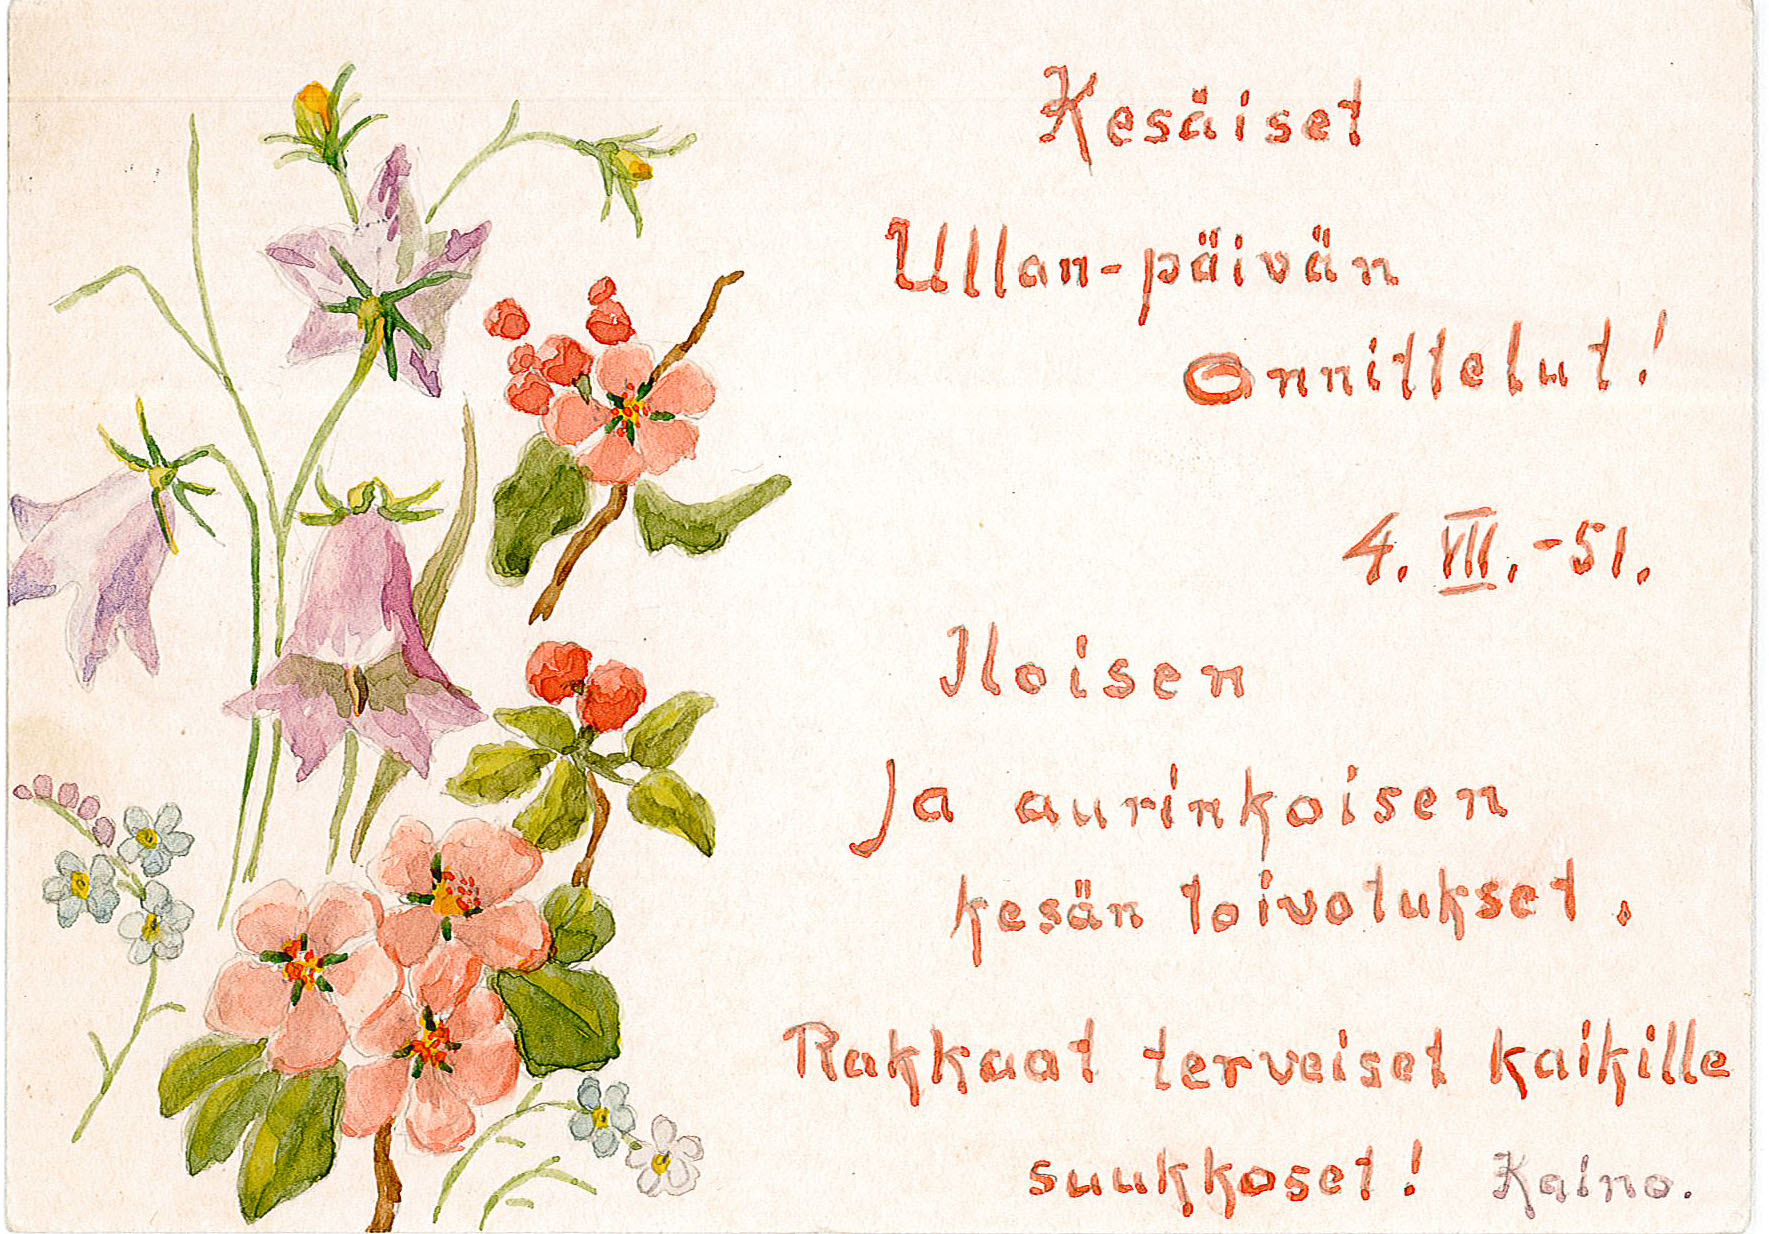 Kesäiset
Ullan-päivän
Onnittelut!
4. VII. -51.
Iloisen
ja aurinkoisen
kesän toivotukset.
Rakkaat terveiset kaikille
suukkoset! Kaino.